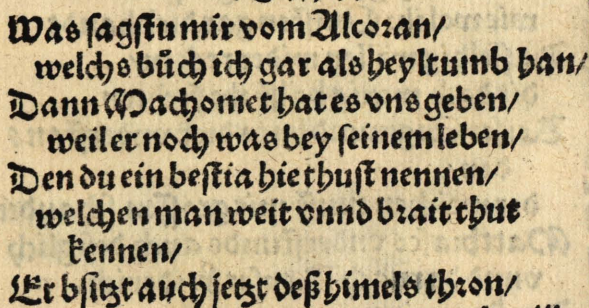 Was sagstu mir vom Alcoran/
welchs bůch ich gar als heyltumb han/
Dann Machomet hat es vns geben/
weil er noch was bey seinem leben/
Den du ein bestia hie thust nennen/
welchen man weit vnnd brait thut
kennen/
Er bsitzt auch jetzt deß himels thron/